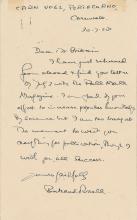 CARN VOEL, PORTHCURNO,
Cornwall
20.7.22
Dear Mr Britain
I have just returned
from abroad & find you letter
of July 7 with the Pall Mall
Magazine. I am glad of your
effort to increase popular knowledge
of science but I am too busy at
the moment to write you
anything for publication, though I
wish you all success.
Yours faithfully
Bertrand Russell